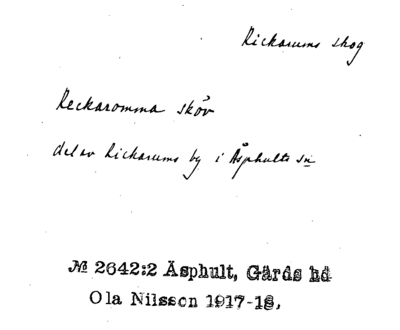 Rickarums skog
Reckaromma skóv
del av Rickarums by i Äsphults sn
№ 2642:2 Äsphult, Gärds hd
Ola Nilsson 1917-18,